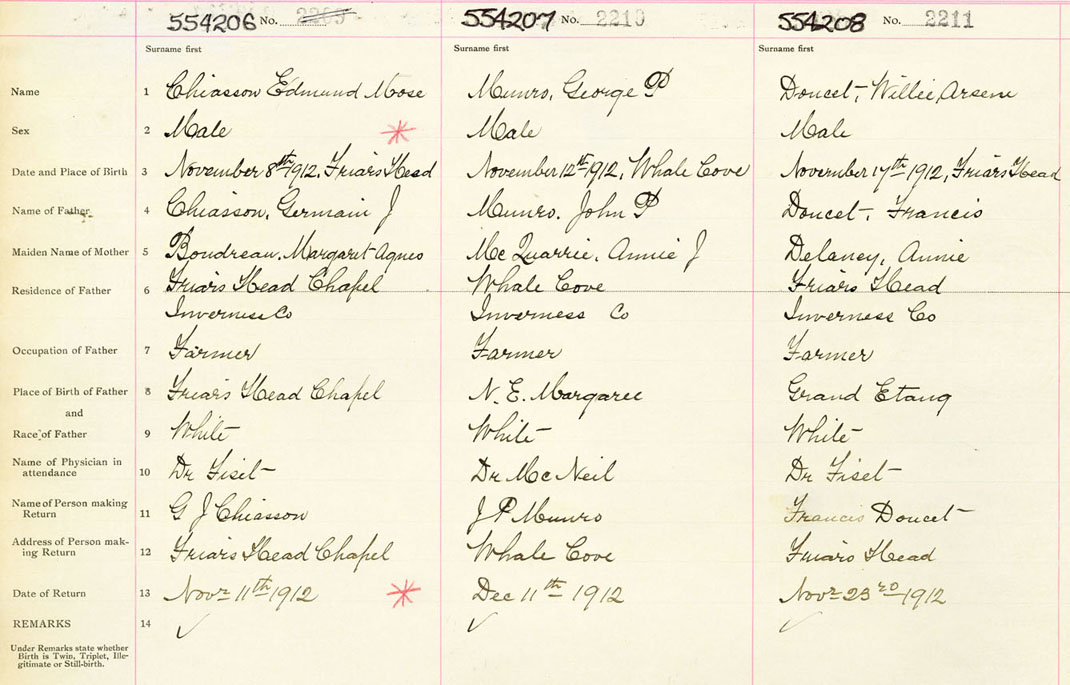 554206 No. 2209 554207 No. 2210 554208 No. 2211
Surname first Surname first Surname first
Name 1 Chiasson Edmund Mose Munro, George P Doucet, Willie Arsene
Sex 2 Male Male Male
Date and Place of Birth 3 November 8th 1912. Friars Head November 12th 1912, Whale Cove November 17th 1912, Friars Head
Name of Father 4 Chiasson, Germain J Munro. John P Doucet, Francis
Maiden Name of Mother 5 Boudreau. Margaret Agnes Mc Quarrie, Annie J Delaney, Annie
Residence of Father 6 Friars Head Chapel Whale Cove Friars Head
Inverness Co Inverness Co Inverness Co
Occupation of Father 7 Farmer Farmer Farmer
Place of Birth of Father 8 Friars Head Chapel N. E. Margaree Grand Etang
and
Race of Father 9 White White White
Name of Physician in
attendance 10 Dr Fiset Dr McNeil Dr Fiset
Name of Person making
Return 11 G J Chiasson J P Munro Francis Doucet
Address of Person mak-
ing Return 12 Friars Head Chapel Whale Cove Friars Head
Date of Return 13 Novr 11th 1912 Dec 11th 1912 Novr 23rd 1912
REMARKS 14
Under Remarks state whether
Birth is Twin, Triplet, Ille-
gitimate or Still-birth.